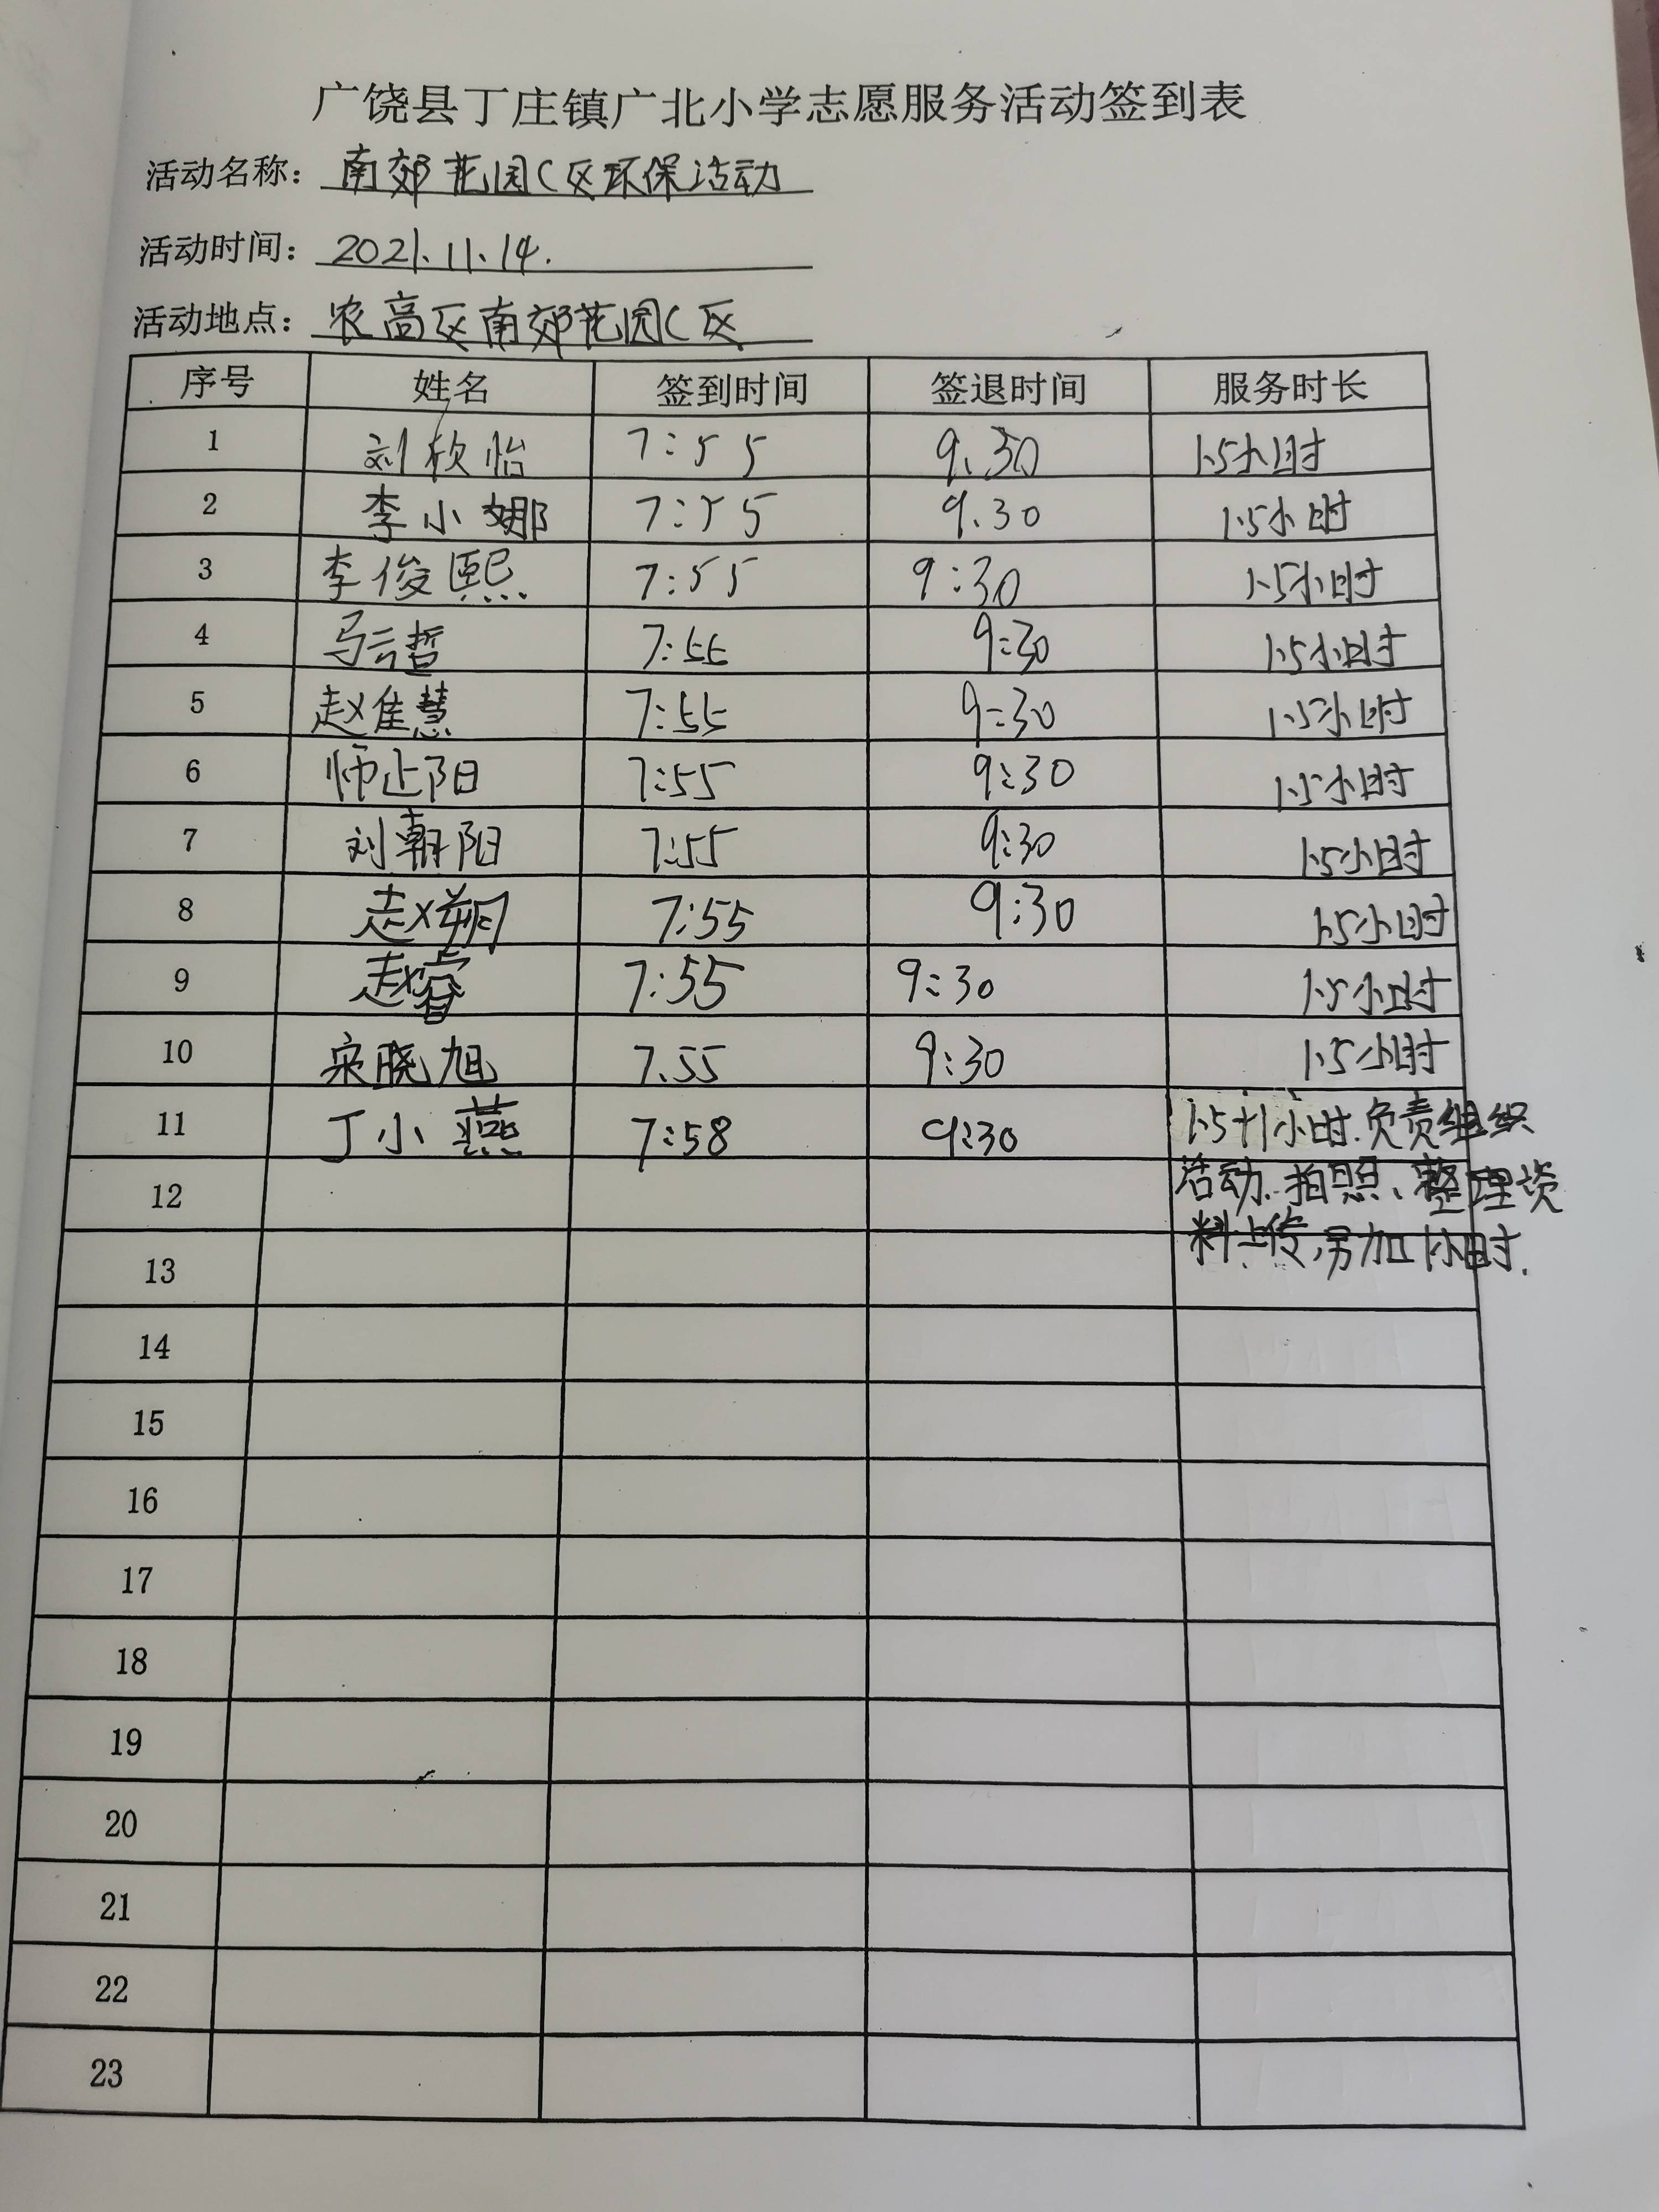 广饶县丁庄镇广北小学志愿服务活动签到表
活动名称：南郊花园C区环保活动
活动时间：2021.11.14.
活动地点：农高区南郊花园C区
序号 姓名 签到时间 签退时间 服务时长
1 刘欣怡 7:55 9.30 1.5小时
2 李小娜 7:55 9.30 1.5小时
3 李俊熙 7:55 9:30 1.5小时
4 马云哲 7:55 9:30 1.5小时
5 赵佳慧 7:55 9:30 1.5小时
6 师正阳 7:55 9:30 1.5小时
7 刘朝阳 7:55 9:30 1.5小时
8 赵朔 7:55 9:30 1.5小时
9 赵睿 7:55 9:30 1.5小时
10 宋晓旭 7.55 9:30 1.5小时
11 丁小燕 7:58 9:30 1.5+1小时.负责组织
12 活动、拍照、整理资
13 料上传,另加1小时.
14
15
16
17
18
19
20
21
22
23